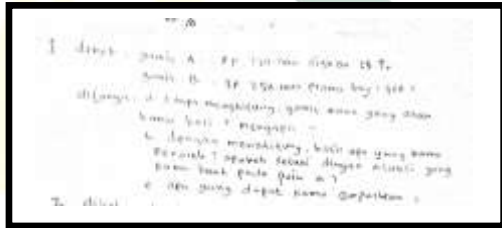 I diket : gamis A : Rp. diskon 25 %
gamis B : Rp. 250.000 promo buy 1 get 1
ditanya : a. tanpa menghitung, gamis mana yang akan
kamu beli ? mengapa
b. dengan menghitung, hasil apa yang kamu
peroleh ? apakah sesuai dengan yang
kamu buat pada poin a ?
c. apa yang dapat kamu simpulkan ?
diket